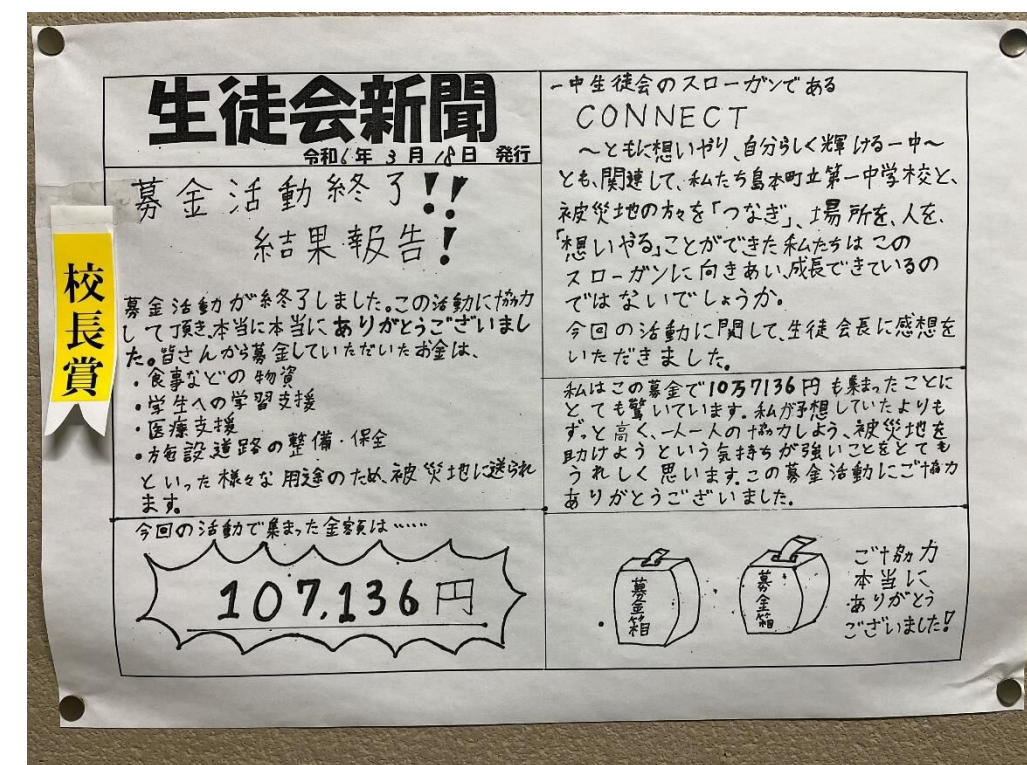 生徒会新聞
令和6年3月18日 発行
募金活動終了!!
結果報告!
校長賞
募金活動が終了しました。この活動に協力
して頂き、本当に本当にありがとうございまし
た。皆さんから募金していただいたお金は、
・食事などの物資
・学生への学習支援
・医療支援
・施設道路の整備・保全
といった様々な用途のため、被災地に送られ
ます。
今回の活動で集まった金額は……
107,136円
一中生徒会のスローガンである
CONNECT
～ともに想いやり、自分らしく輝ける一中～
とも、関連して、私たち島本町立第一中学校と、
被災地の方々を「つなぎ」、場所を、人を、
「想いやる」ことができた私たちはこの
スローガンに向きあい、成長できているの
ではないでしょうか。
今回の活動に関して、生徒会長に感想を
いただきました。
私はこの募金で10万7136円も集まったことに
とても驚いています。私が予想していたよりも
ずっと高く、一人一人の協力しよう、被災地を
助けようという気持ちが強いことをとても
うれしく思います。この募金活動にご協力
ありがとうございました。
募金箱
募金箱
ご協力
本当に
ありがとう
ございました!